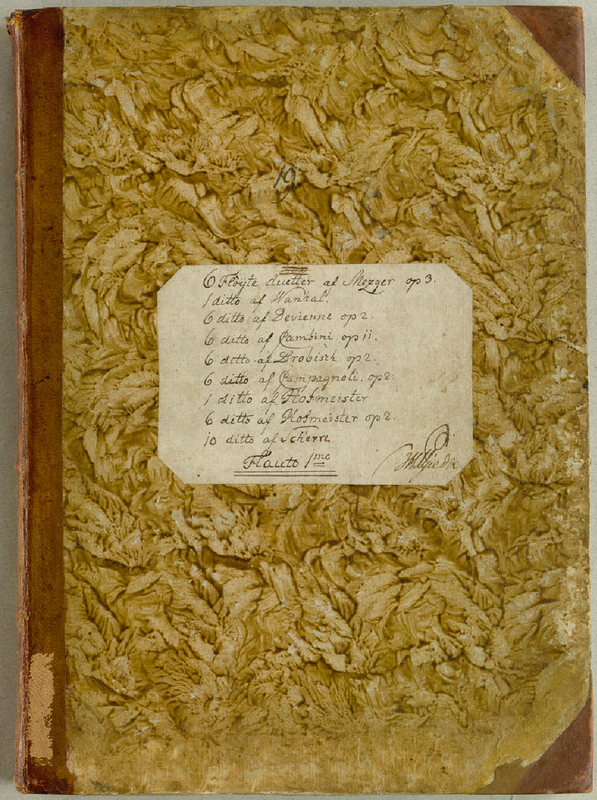 19
6 Fløyte duetter af Mezger op 3.
1 ditto af Wanhal.
6 ditto af Devienne op 2.
6 ditto af Cambini op 11.
6 ditto af Drobisch op 2.
6 ditto af Campagnoli, op 2.
1 ditto af Hofmeister
6 ditto af Hofmeister op 2.
10 ditto af Scherre
Flauto 1mo